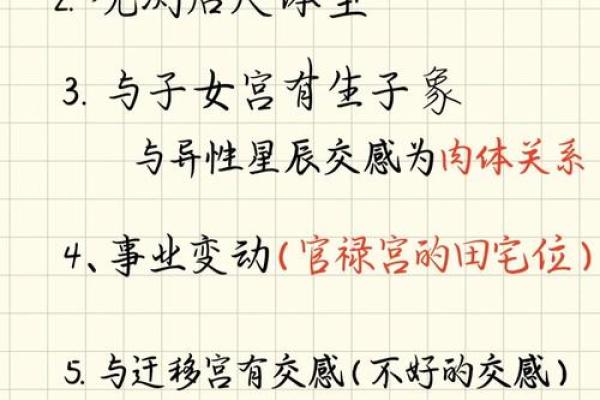 2.
3. 与子女宫有生子象
与异性星辰交感为肉体关系
4、事业变动(官禄宫的田宅位)
5. 与迁移宫有交感(不好的交感)